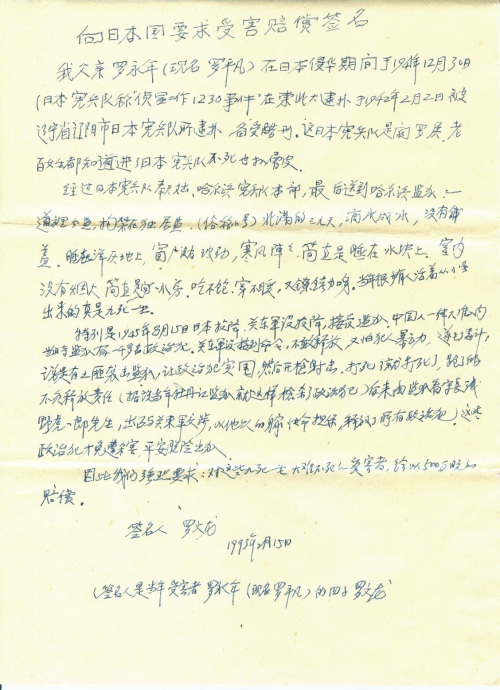 向日本国要求受害赔偿签名
我父亲罗永年(现名罗平凡)在日本侵华期间于1941年12月30日
(日本宪兵队称"侦空工作1230事件"在东北大逮捕于1942年2月2日被
辽宁省辽阳市日本宪兵队所逮捕备受酷刑。这日本宪兵队是阎罗殿,老
百姓都知道进了日本宪兵队不死也扒层皮。
经过日本宪兵队奉天、哈尔滨宪兵本部,最后送到哈尔滨监狱:一
道里分监,拘禁在独居监。(俗称小号)北满的三九天,滴水成冰,没有铺
盖。睡在洋灰地上,窗户没有玻璃,寒风阵阵简直是睡在水块上。室内
没有烟火简直是个冰窖。吃不饱,穿不暖,又镣铐劳身。当年很少有人活着从小号
出来的真是九死一生。
特别是1945年8月15日日本投降,关东军没投降,接应监狱。中国人一伟大,狱内
有一千多名政治犯。关东军接到命令,不敢释放,又怕犯人暴动,
说是有土匪袭击监狱,让政治犯突围,然后开枪射击,打死了就打死了,跑了的
不负释放责任(据说当年牡丹江监狱就这样枪杀了政治犯)后来由监狱看守长浅
野虎一郎先生,出面与关东军交涉,以他以的躯体命担保,释放了所有政治犯,这些
政治犯才免遭杀害,平安脱险出狱。
因此我们强烈要求:对这些九死一生大难不死的受害者,给以500万日元的
赔偿。
签名人 罗文龙
1993年2月15日
(签名人是当年受害者罗永年(现名罗平凡)的四子罗文龙